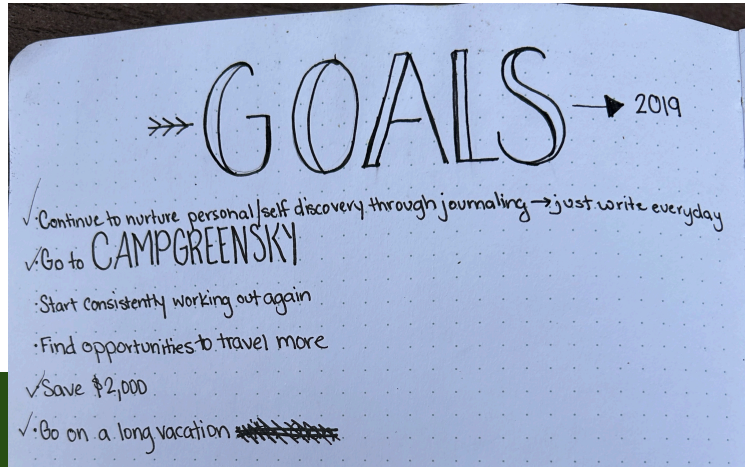 GOALS → 2019
✓·Continue to nurture personal/self discovery through journaling → just write everyday
✓·Go to CAMPGREENSKY
·Start consistently working out again
·Find opportunities to travel more
✓Save $2,000
✓·Go on a long vacation